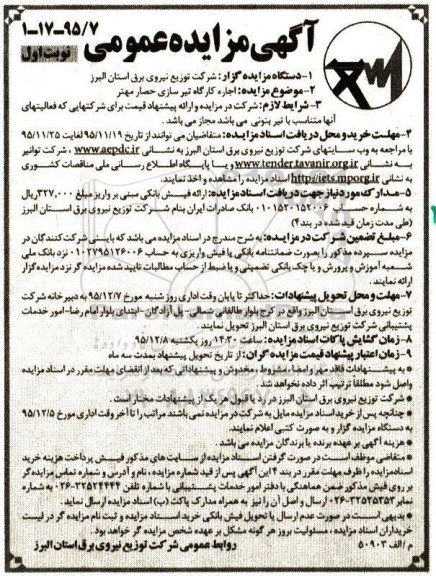 آگهی مزایده عمومی
۱-۱۷-۹۵/۷
نوبت اول
۱-دستگاه مزایده گزار: شرکت توزیع نیروی برق استان البرز
۲-موضوع مزایده: اجاره کارگاه تیر سازی حصار مهتر
۳- شرایط لازم: شرکت در مزایده و ارائه پیشنهاد قیمت برای شرکتهایی که فعالیتهای
آنها متناسب با تیر بتونی می باشد مجاز می باشد.
۴-مهلت خرید و محل دریافت اسناد مزایده: متقاضیان می توانند از تاریخ ۹۵/۱۱/۱۹ لغایت ۹۵/۱۱/۲۵
با مراجعه به وب سایتهای شرکت توزیع نیروی برق استان البرز به نشانی www.aepdc.ir ، شرکت توانیر
به نشانی www.tender.tavanir.org.ir و یا پایگاه اطلاع رسانی ملی مناقصات کشوری
به نشانی http://iets.mporg.ir اسناد مزایده را مشاهده و اخذ نمایند.
۵-مدارک مورد نیاز جهت دریافت اسناد مزایده: ارائه فیش بانکی مبنی بر واریز مبلغ ۳۲۷,۰۰۰ ریال
به شماره حساب ۰۱۰۱۵۲۰۱۵۲۰۰۶ بانک صادرات ایران بنام شرکت توزیع نیروی برق استان البرز
(طی مدت زمان قید شده در بند ۴)
۶-مبلغ تضمین شرکت در مزایده: به شرح مندرج در اسناد مزایده می باشد که بایستی شرکت کنندگان در
مزایده سپرده مذکور را بصورت ضمانتنامه بانکی یا فیش واریزی به حساب ۰۱۰۲۷۹۵۱۲۶۰۰۶ نزد بانک ملی
شعبه آموزش و پرورش و یا چک بانکی تضمینی و یا ضبط از حساب مطالبات تایید شده مزایده گر نزد مزایده گزار
ارائه نمایند.
۷-مهلت و محل تحویل پیشنهادات: حداکثر تا پایان وقت اداری روز شنبه مورخ ۹۵/۱۲/۷ به دبیرخانه شرکت
توزیع نیروی برق استان البرز واقع در کرج بلوار طالقانی شمالی- پل آزادگان -ابتدای بلوار امام رضا- امور خدمات
پشتیبانی شرکت توزیع نیروی برق استان البرز تحویل نمایند.
۸-زمان گشایش پاکات اسناد مزایده: ساعت ۱۴:۳۰ روز یکشنبه ۹۵/۱۲/۸
۹-زمان اعتبار پیشنهاد قیمت مزایده گران: از تاریخ تحویل پیشنهاد بمدت سه ماه
● به پیشنهادات فاقد مهر و امضا، مشروط، مخدوش و پیشنهاداتی که بعد از انقضای مهلت مقرر در اسناد مزایده
واصل شود مطلقا ترتیب اثر داده نخواهد شد.
● شرکت توزیع نیروی برق استان البرز در رد یا قبول هر یک از پیشنهادات مختار است.
● چنانچه پس از خرید اسناد مزایده مایل به شرکت در مزایده نمی باشند مراتب را تا آخر وقت اداری مورخ ۹۵/۱۲/۵
به دستگاه مزایده گزار و به صورت کتبی اعلام نمایند.
● هزینه آگهی بر عهده برنده یا برندگان مزایده می باشد.
● متقاضی موظف است در صورت گرفتن اسناد مزایده از سایت های مذکور فیش پرداخت هزینه خرید
اسناد مزایده را ظرف مهلت مقرر در بند ۴ این آگهی پس از قید شماره مزایده، نام و آدرس و شماره تماس مزایده گر
بر روی فیش مذکور ضمن هماهنگی با دفتر امور خدمات پشتیبانی با شماره تلفن ۳۲۵۲۴۴۴۴-۰۲۶ به شماره
نمابر ۳۲۵۲۵۳۵۳-۰۲۶ ارسال و اصل آن را نیز به همراه مدارک پاکت (ب) اسناد مزایده ارسال نماید.
● بدیهی است در صورت عدم ارسال یا تحویل فیش بانکی خرید اسناد مزایده و ثبت نام مزایده گر در لیست
خریداران اسناد مزایده ، مسئولیت بروز هر گونه مشکل بر عهده شخص مزایده گر خواهد بود.
م الف ۵۰۹۰۳
روابط عمومی شرکت توزیع نیروی برق استان البرز